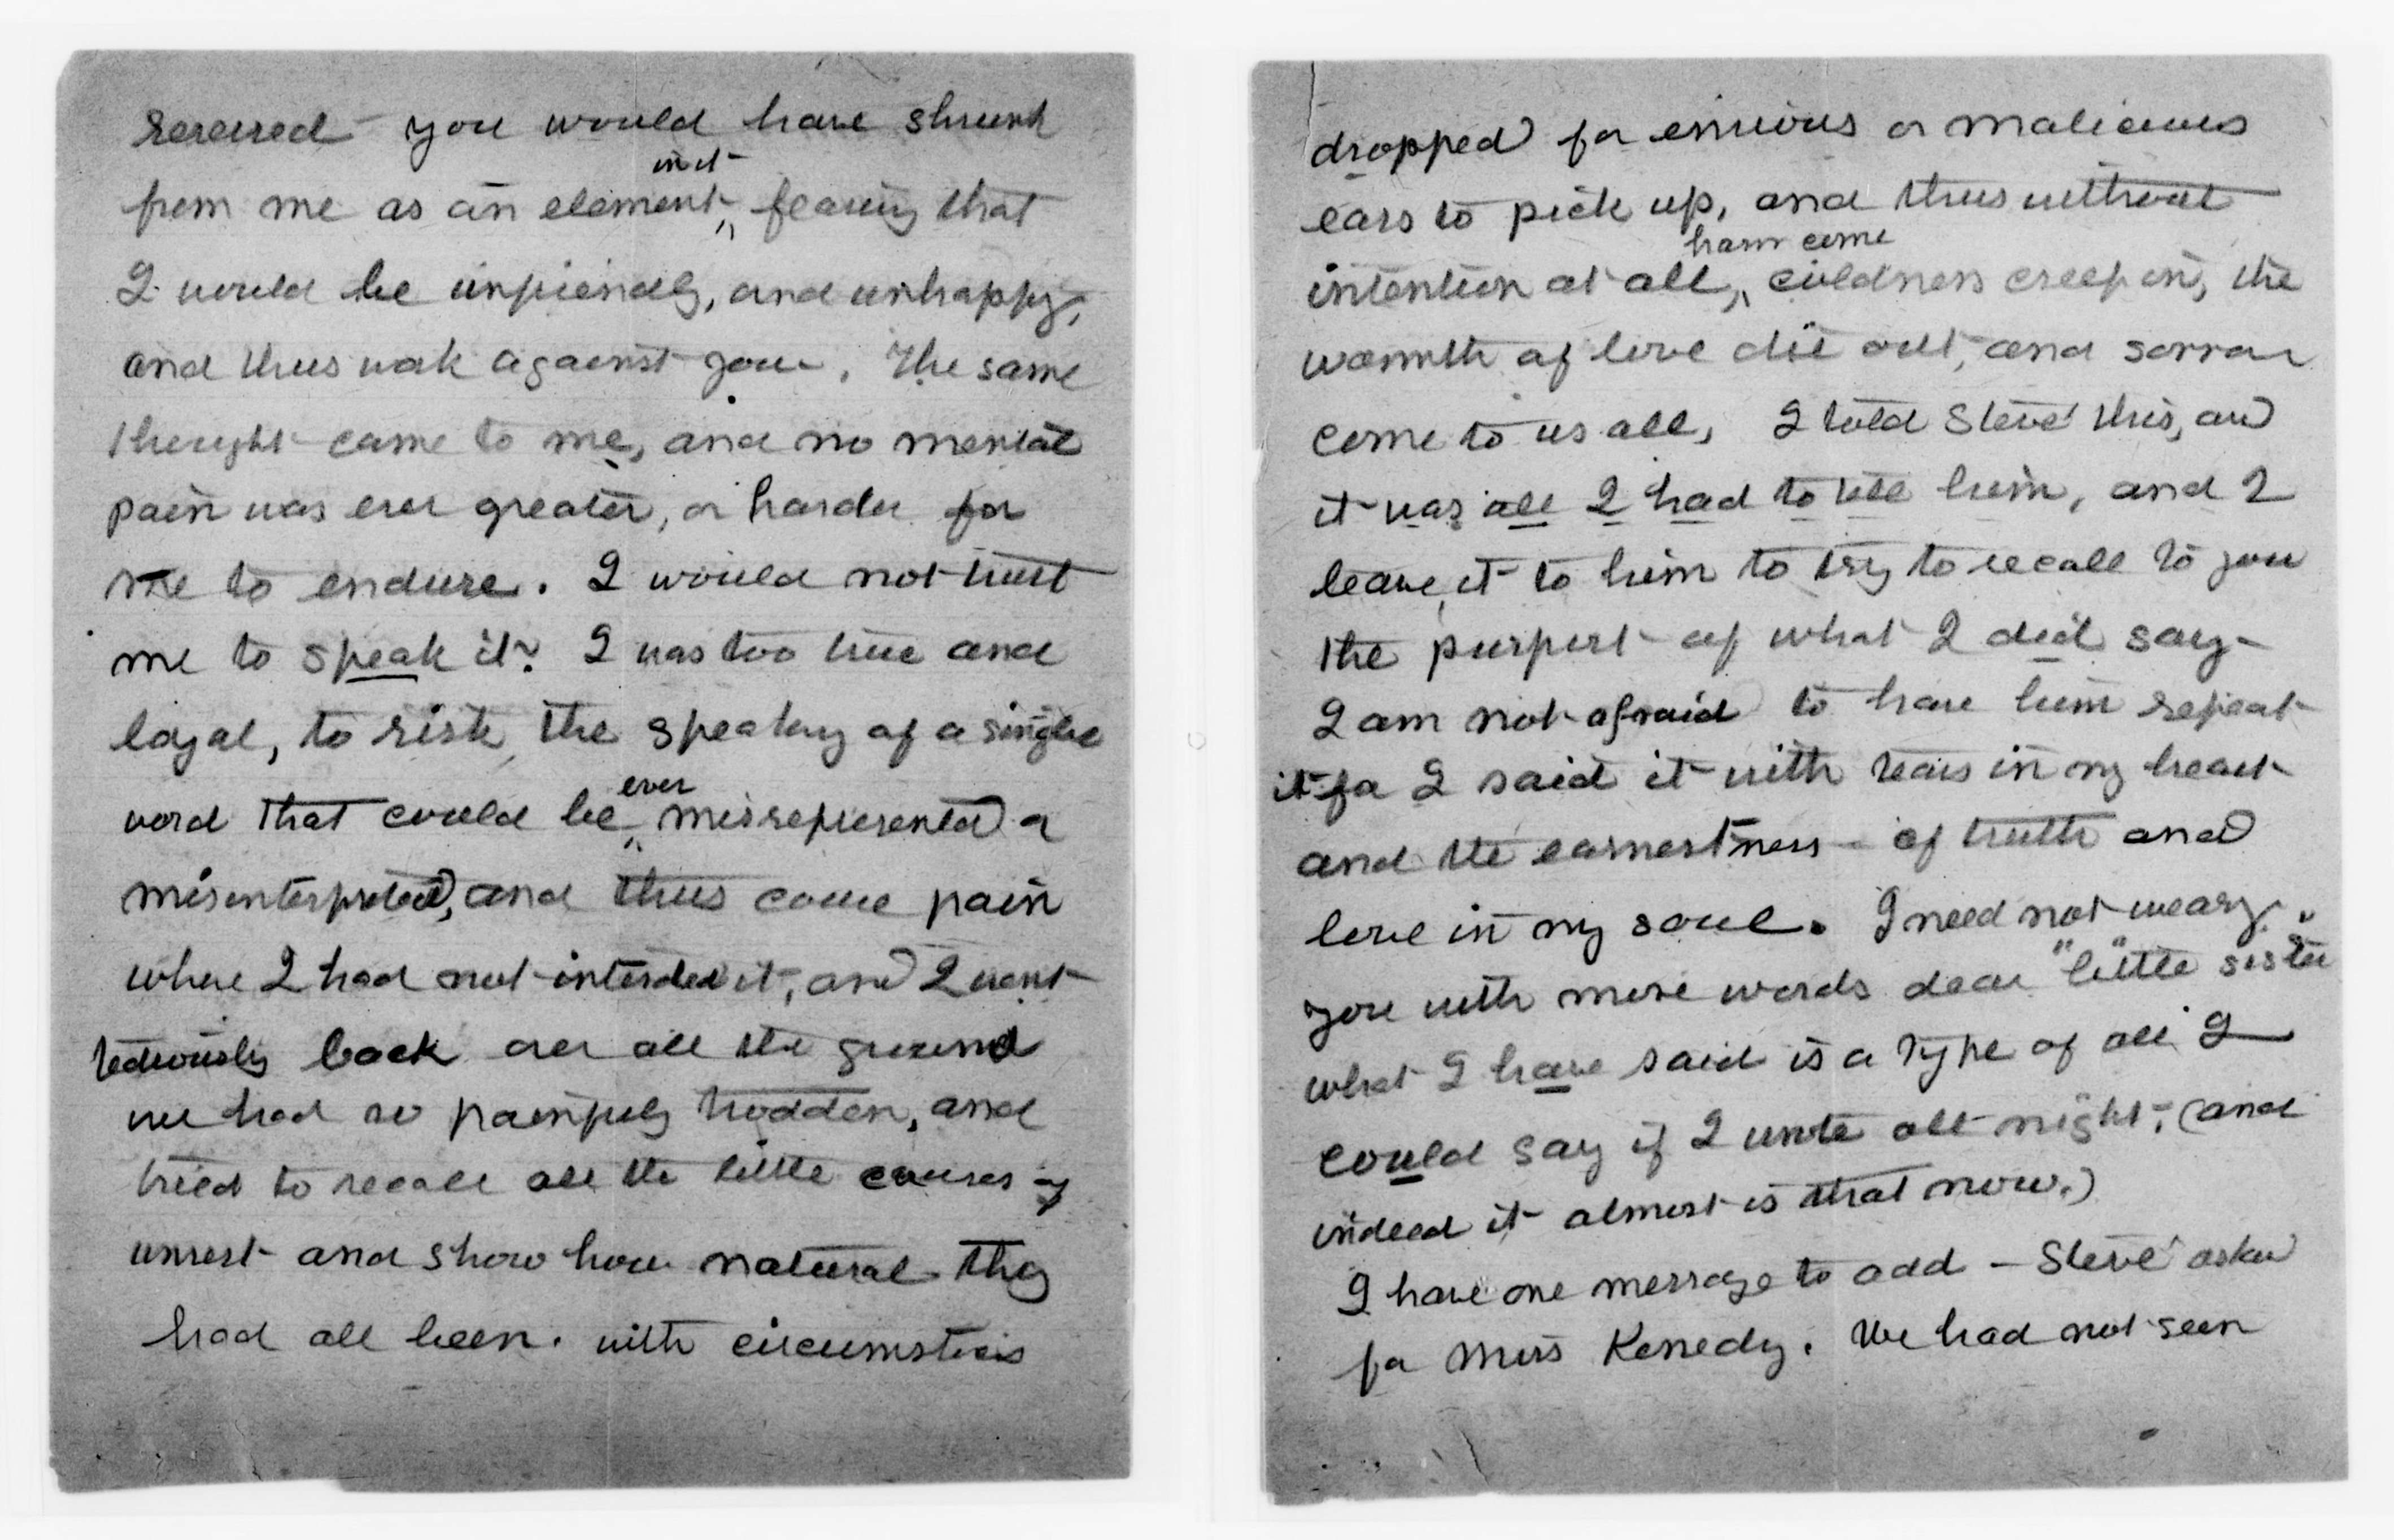 reserved - you would have shrunk
in it
from me as an element, fearing that
I would be unfriendly, and unhappy,
and thus work against you. The same
thought came to me, and no mental
pain was ever greater, or harder for
me to endure. I would not trust
me to speak it. I was too true and
loyal, to risk, the speaking of a single
ever
word that could be misrepresented or
misinterpreted, and thus come pain
where I had not intended it, and I went
tediously back over all the ground
we had so painfully trodden, and
tried to recall all the little causes of
unrest and show how natural they
had all been. with circumstances
dropped for envious or malicious
ears to pick up, and thus without
harm come
intention at all, coldness creep in, the
warmth of love die out, and sorrow
come to us all, I told Steve this, and
it was all I had to tell him, and I
leave it to him to try to recall to you
the purport of what I did say -
I am not afraid to have him repeat
it for I said it with tears in my heart
and the earnestness of truth and
love in my soul. I need not weary
you with more words dear "little sister"
what I have said is a type of all I
could say if I wrote all night, (and
indeed it almost is that now.)
I have one message to add - Steve asked
for Miss Kenedy. We had not seen